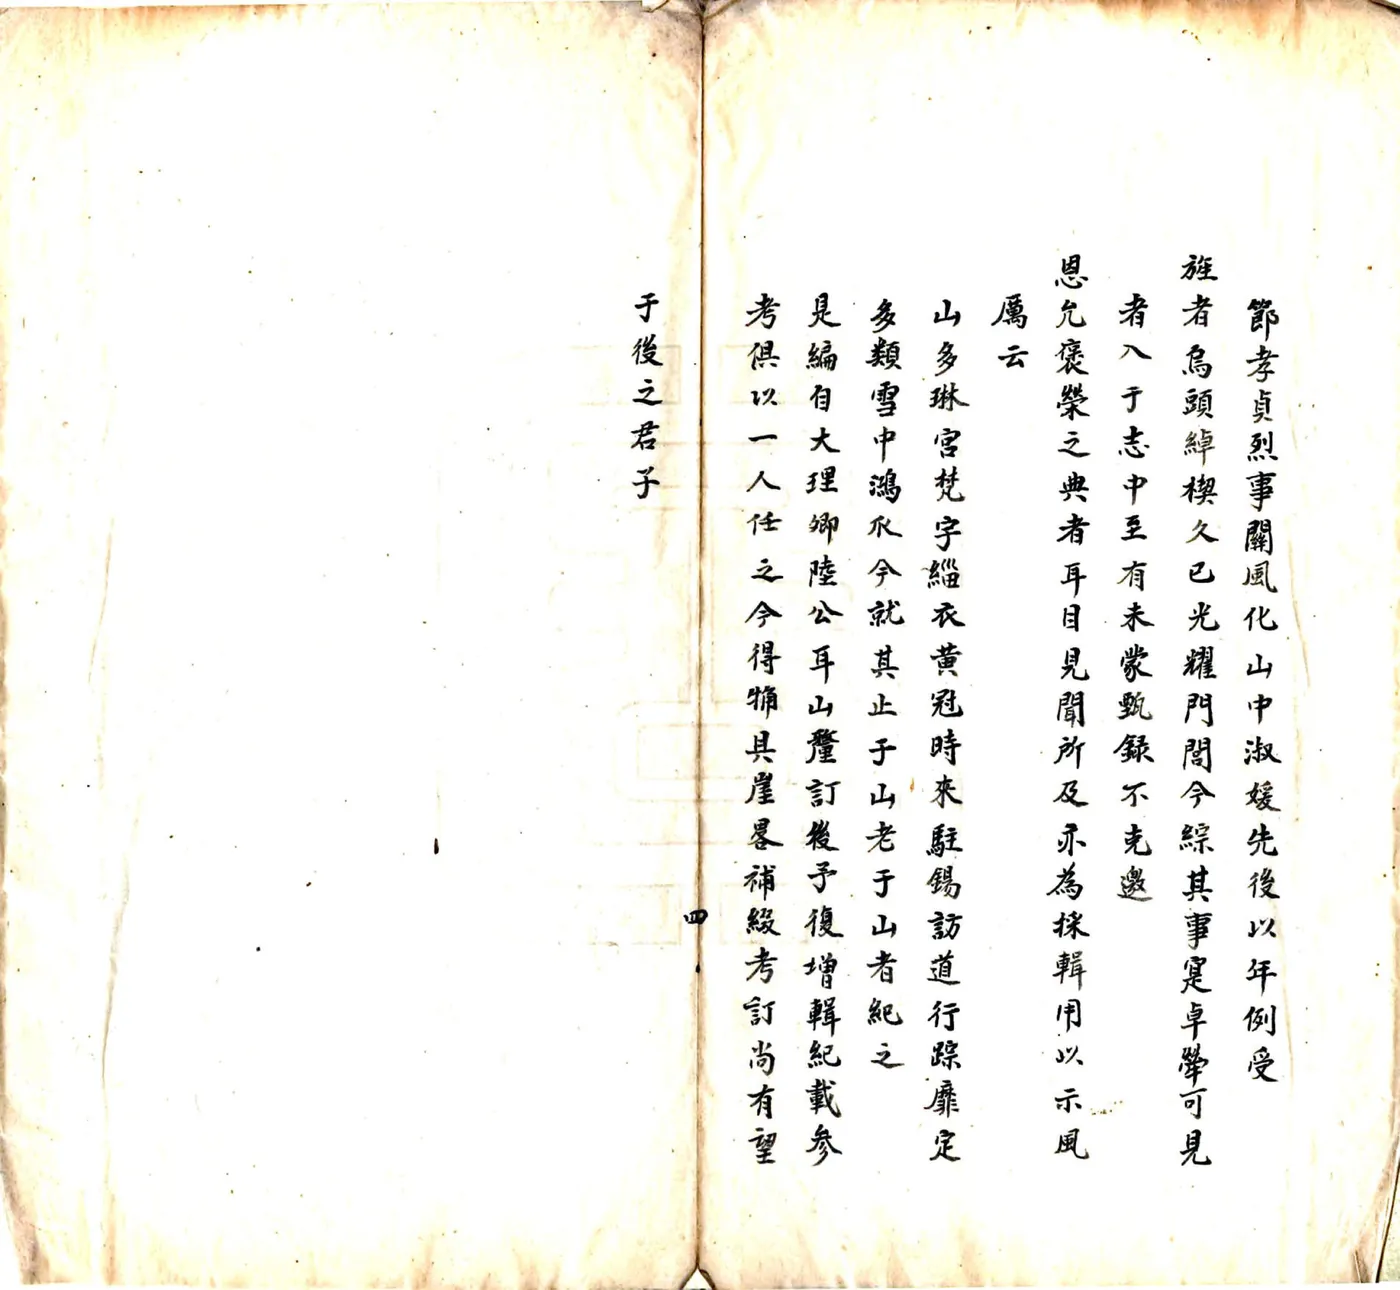 節孝貞烈事關風化山中淑媛先後以年例受
旌者烏頭綽楔久已光耀門閭今綜其事寔卓犖可見
者入于志中至有未蒙甄録不克邀
恩允褒榮之典者耳目見聞所及亦為採輯用以示風
厲云
山多琳宮梵字緇衣黃冠時來駐錫訪道行踪靡定
多類雪中鴻爪今就其止于山老于山者紀之
是編自大理卿陸公耳山釐訂後予復增輯紀載參
考俱以一人任之今得觕具崖畧補綴考訂尚有望
四
于後之君子